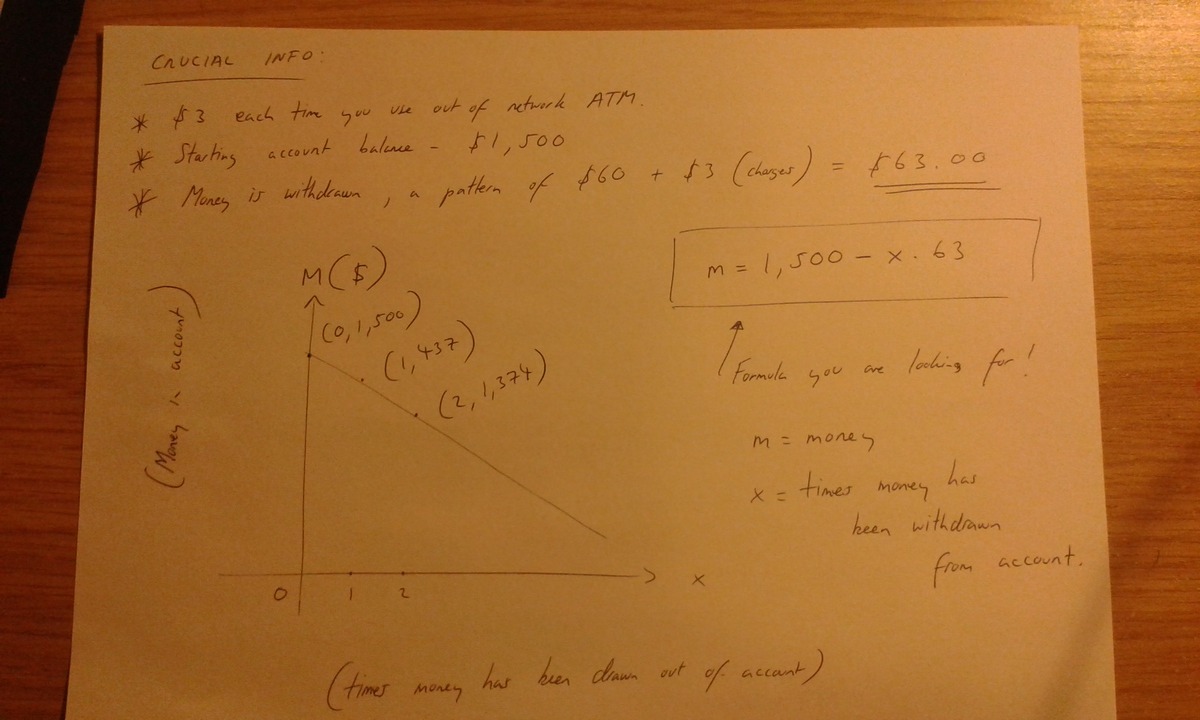 CRUCIAL INFO:
* $3 each time you use out of network ATM.
* Starting account balance - $1,500
* Money is withdrawn, a pattern of $60 + $3 (charges) = $63.00
m = 1,500 - x . 63
Formula you are looking for!
m = money
x = times money has
been withdrawn
from account.
M($)
(Money in account)
(0,1,500)
(1,437)
(2,1,374)
0 1 2
x
(times money has been drawn out of account)